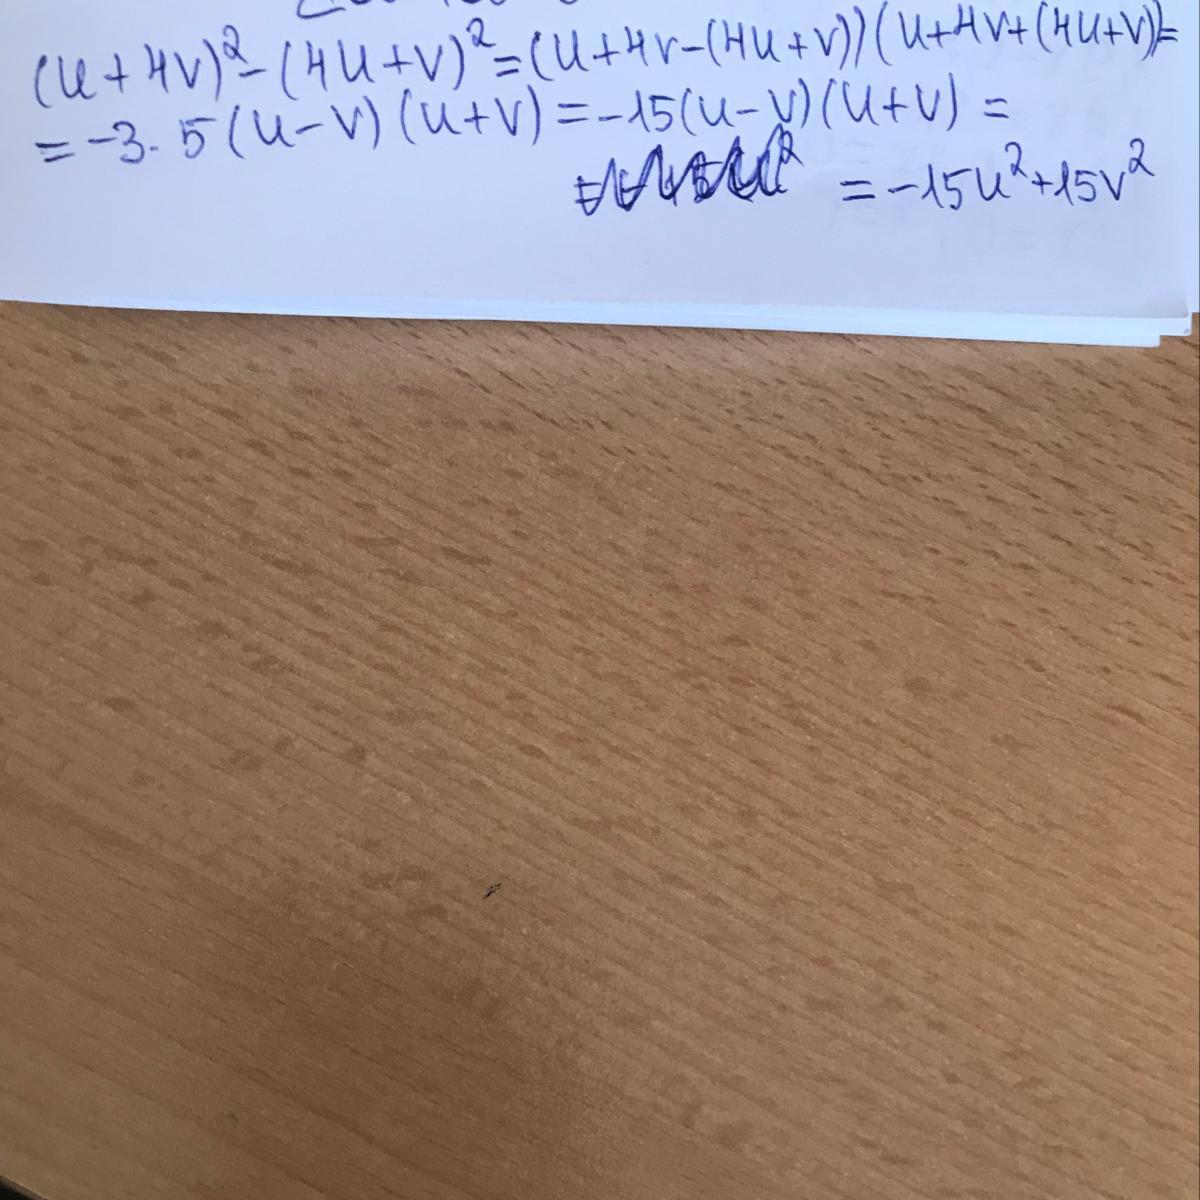 (u+4v)²-(4u+v)²=(u+4v-(4u+v))(u+4v+(4u+v))=
=-3·5(u-v)(u+v)=-15(u-v)(u+v)=
=-15u²+15v²